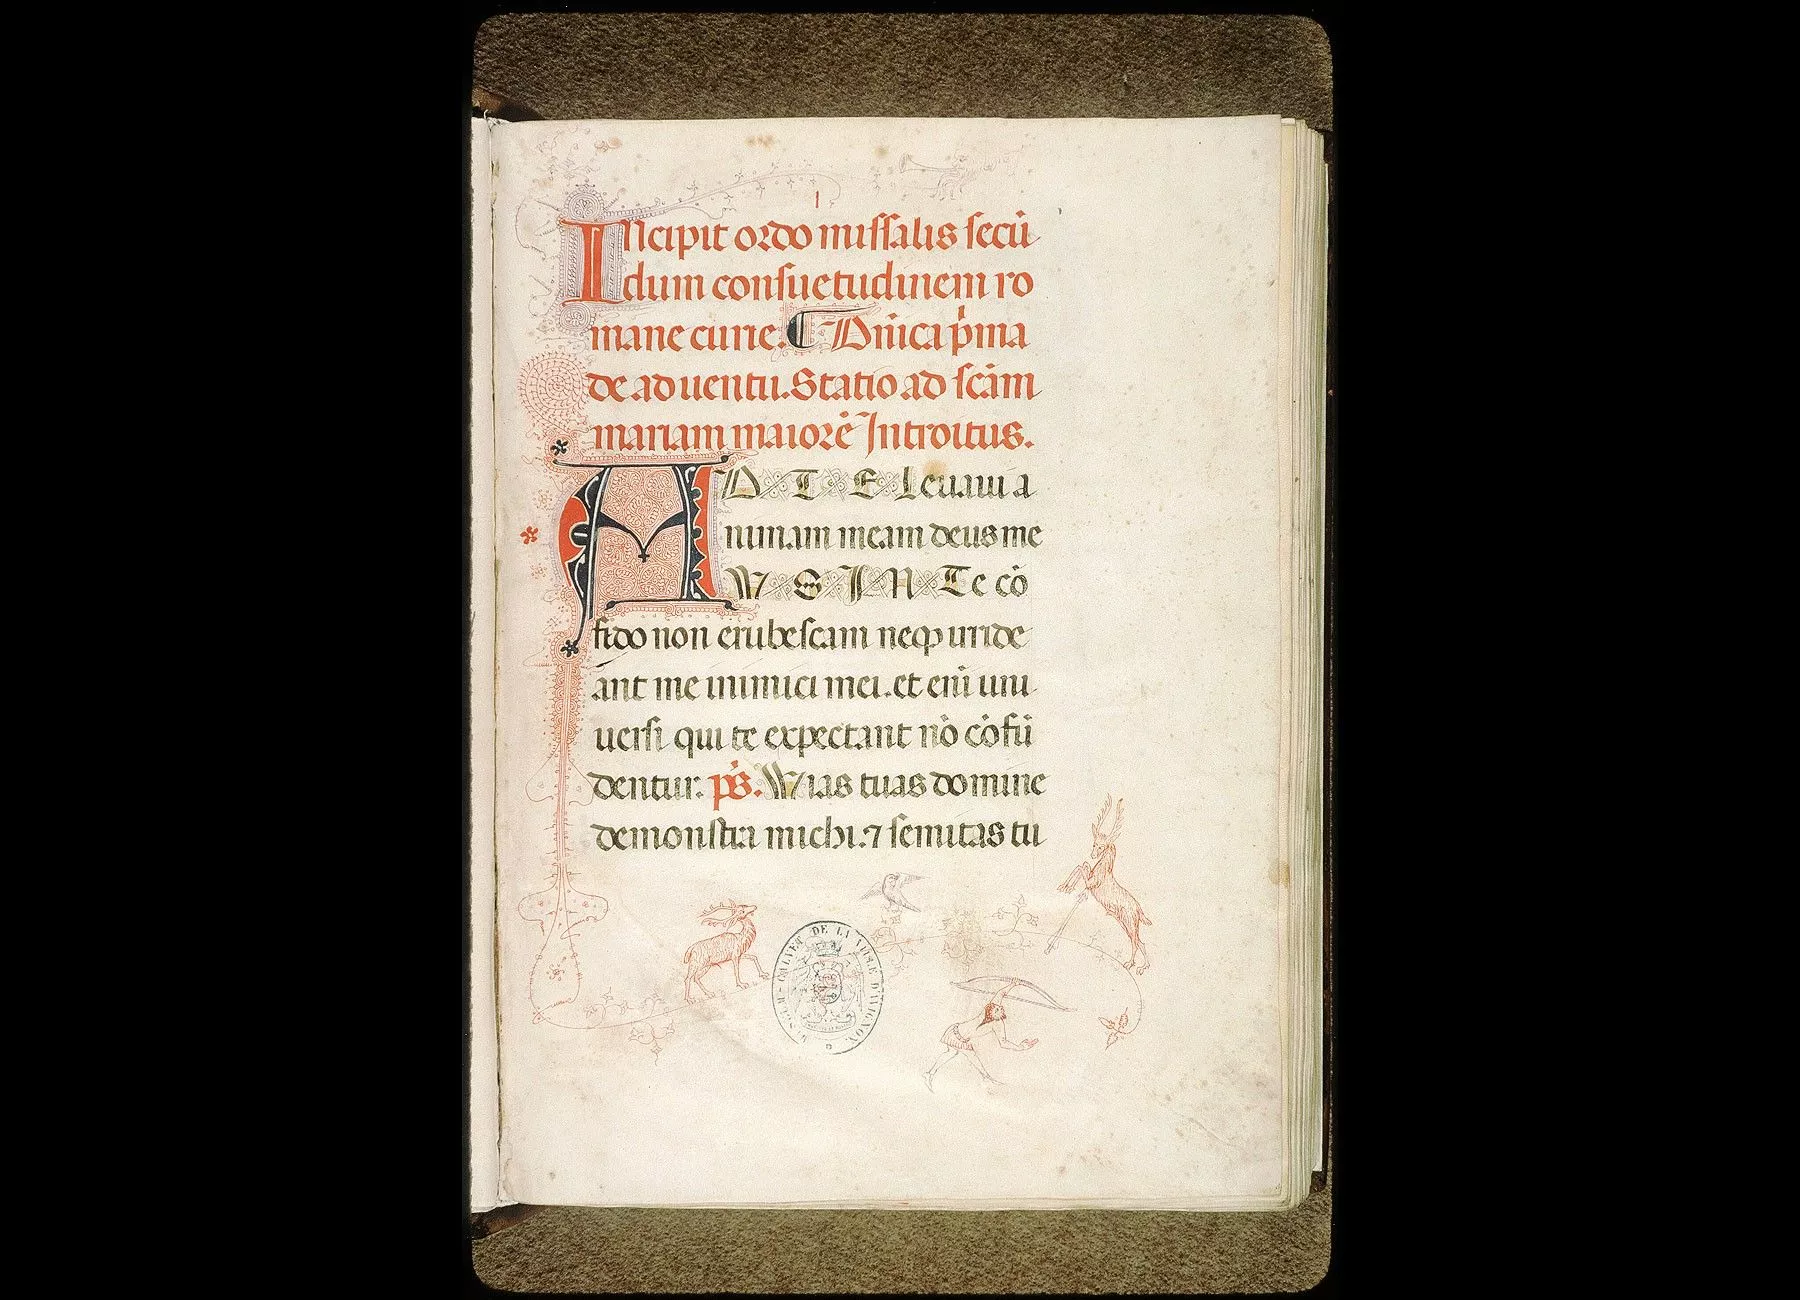 I
INcipit ordo missalis secū
dum consuetudinem ro
mane curie. Dn̄ica p̄ma
de aduentu. Statio ad scām
mariam maiorē Introitus.
AD TE Leuaui a
nimam meam deus me
VS IN Te cō
fido non erubescam neqꝫ irride
ant me inimici mei. et enī uni
uersi qui te expectant nō cōfū
dentur. ps̄. Vias tuas domine
demonstra michi. ⁊ semitas tu
MUSEUM - CALVET DE LA VILLE D'AVIGNON